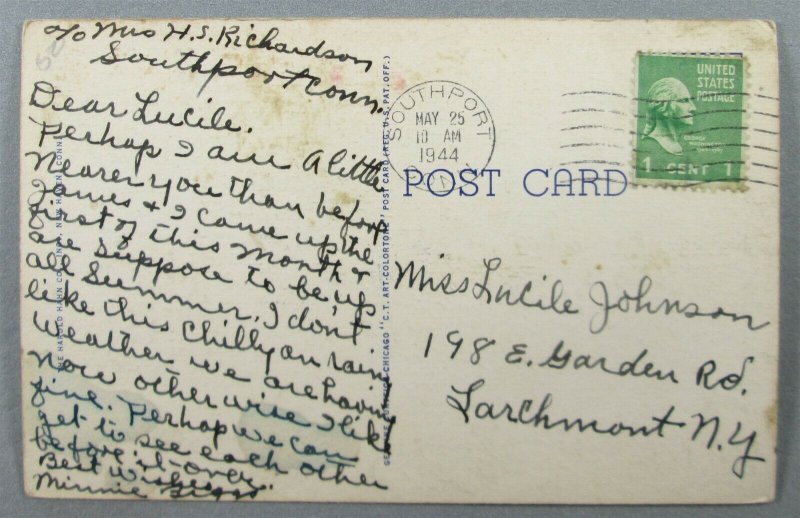 c/o Mrs H.S. Richardson
Southport Conn.
Dear Lucile.
Perhap I am a little
nearer you than before
James & I came up the
first of this month &
are suppose to be up
all Summer. I don't
like this chilly an rainy
weather we are having
now otherwise I like
fine. Perhap we can
get to see each other
before it over.
Best wishes
Minnie Biggs
SOUTHPORT
MAY 25
10 AM
1944
CONN.
UNITED
STATES
POSTAGE
GEORGE
WASHINGTON
1 CENT 1
POST CARD
Miss Lucile Johnson
198 E. Garden Rd.
Larchmont N.Y
THE HAROLD HAHN CO., INC., NEW HAVEN, CONN.
CHICAGO "C.T. ART-COLORTONE" POST CARD (REG. U.S. PAT. OFF.)